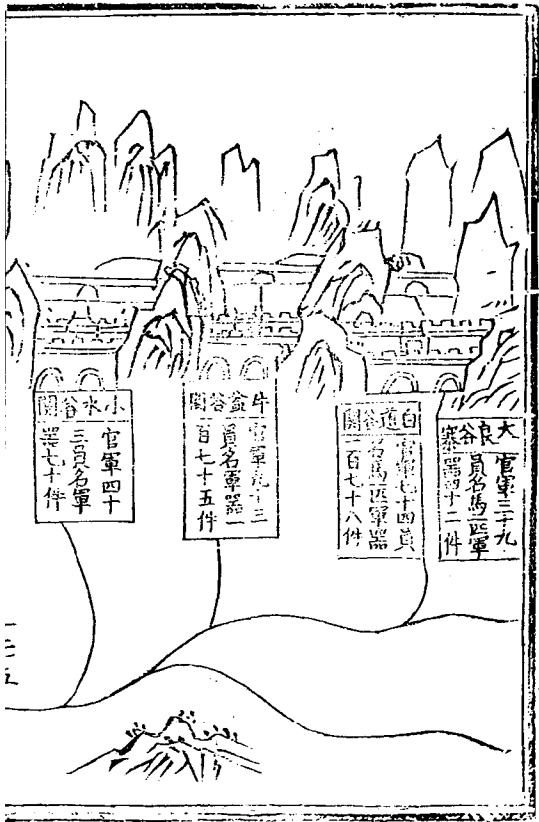 大良谷寨
官軍三十九
員名馬一匹軍
器四十二件
白道谷關
官軍七十四員
名馬一匹軍器
一百七十八件
牛盆谷關
官軍九十三
員名軍器一
百七十五件
小水谷關
官軍四十
三員名軍
器七十件